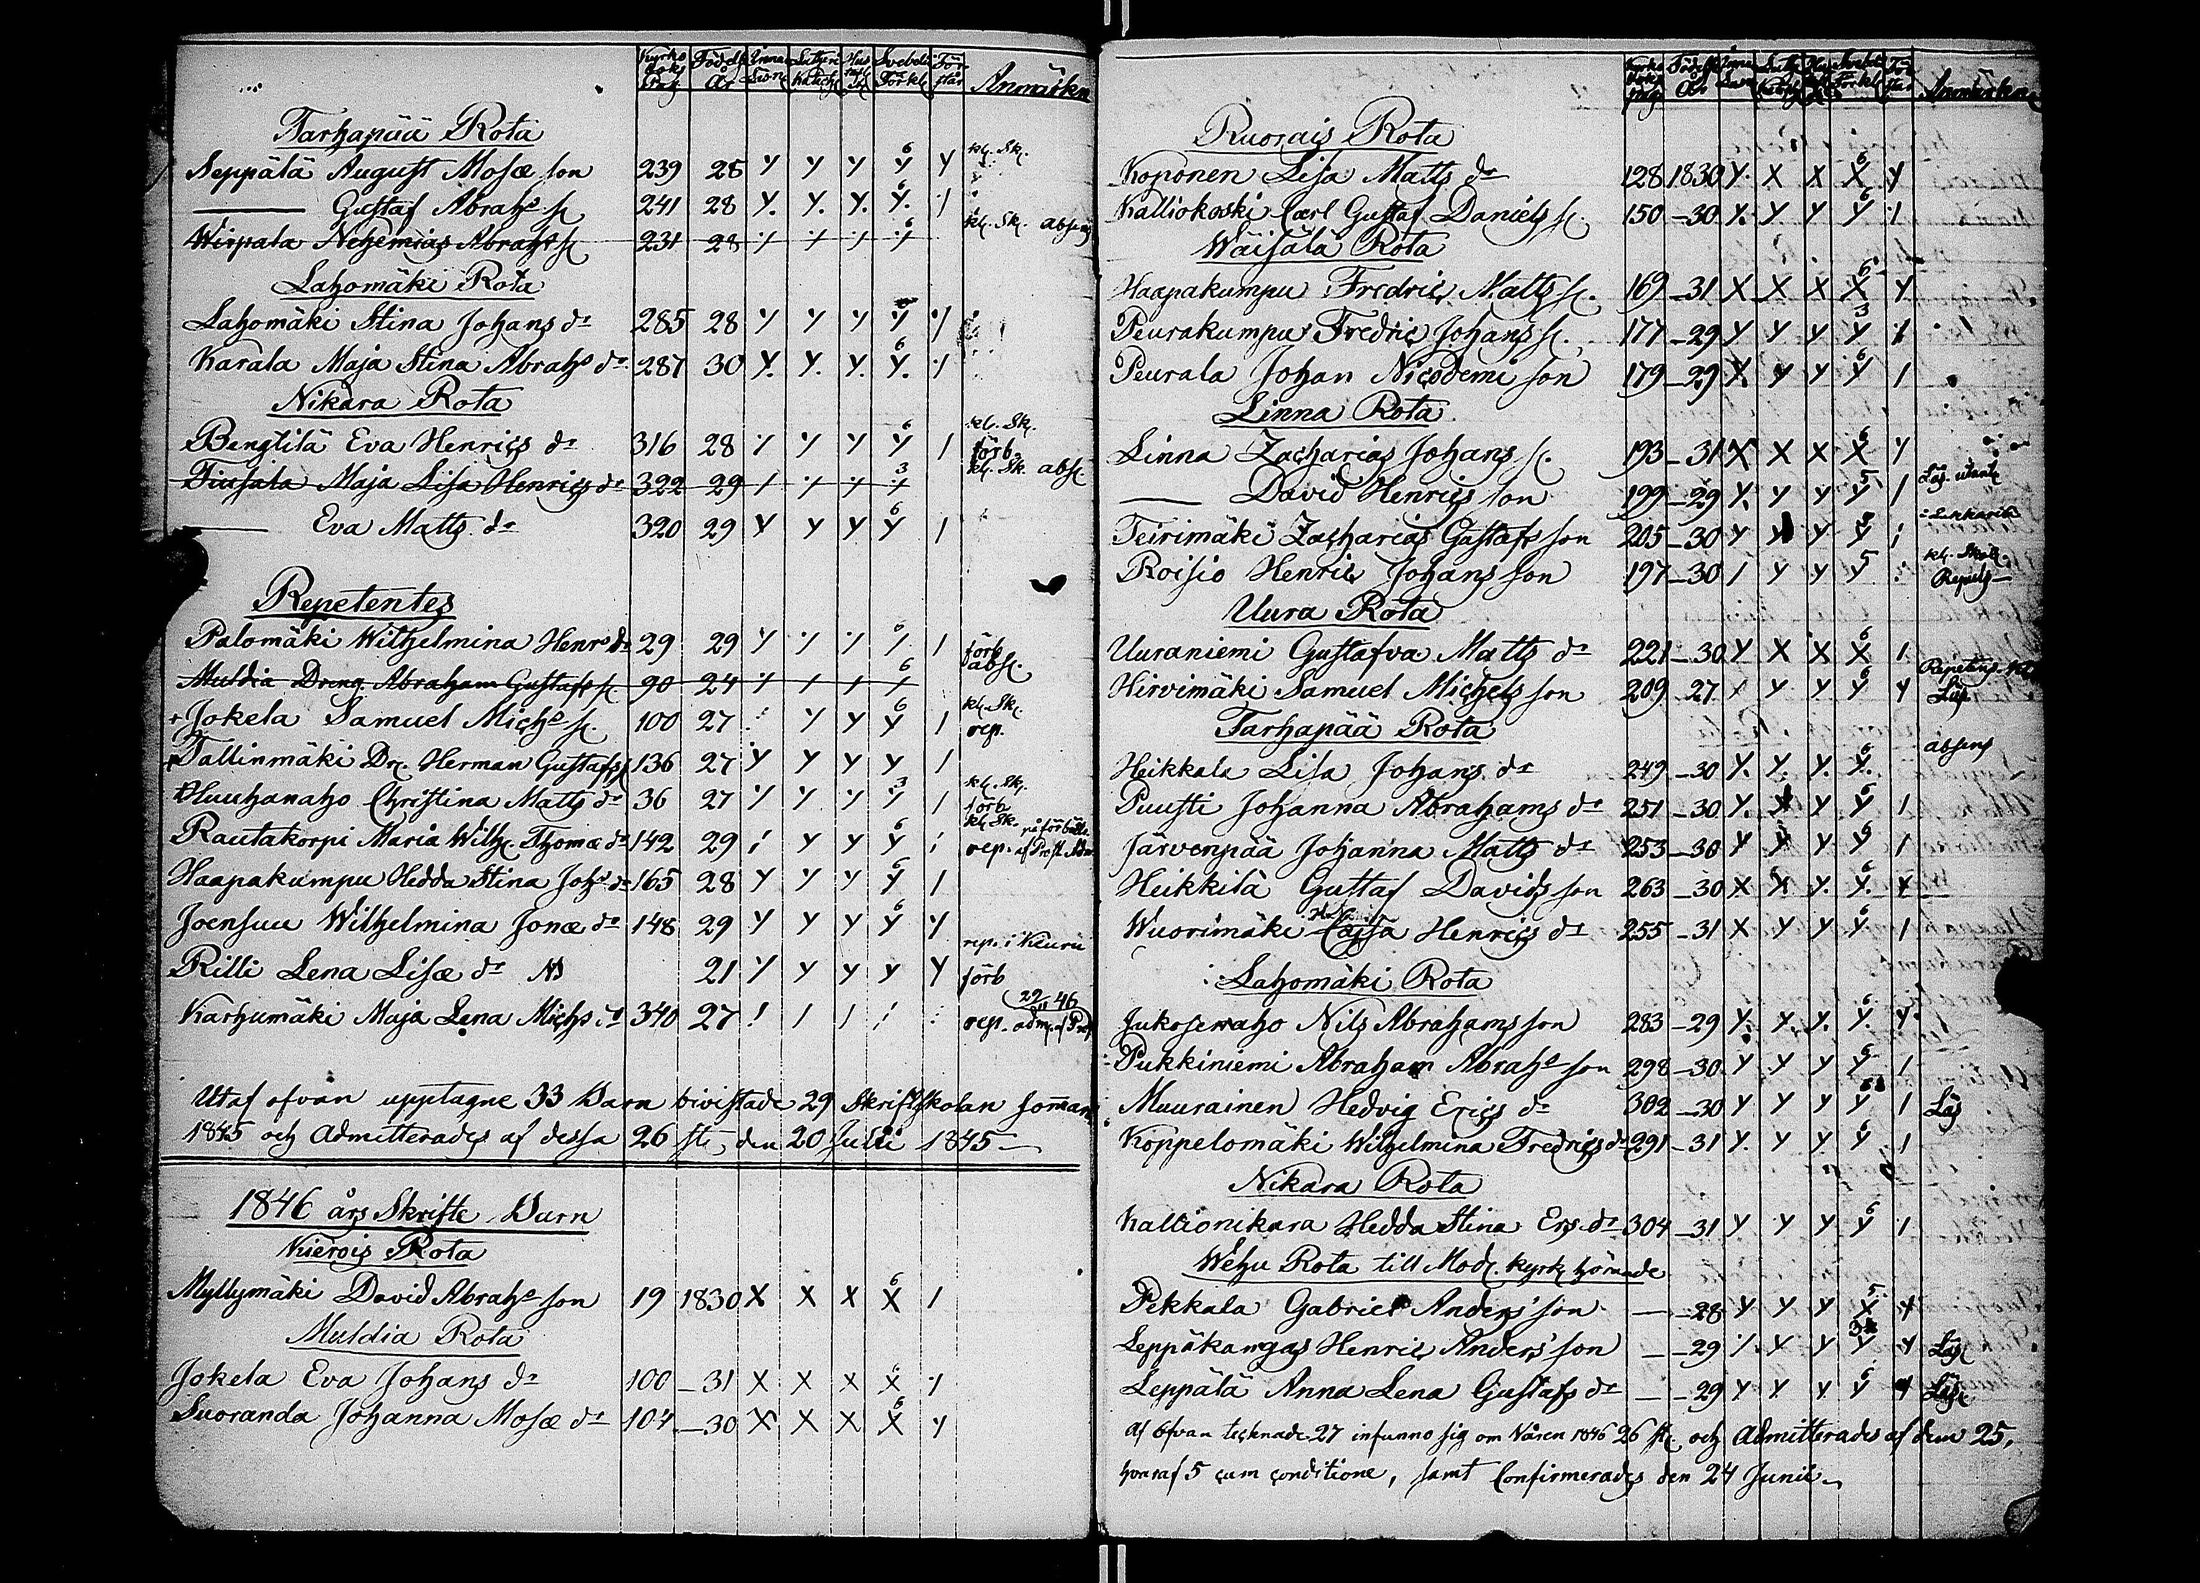 Kyrko boks pag Födels År Innan Läsn Lutheri Katech Hus tafl Svebelii Förkl För står Anmärkn
Tarhapää Rota
Seppälä August Mosæ son 239 28 kl. Sk.
—— Gustaf Abrahs s. 241 28
Wirpala Nehemias Abrahs s. 231 28 kl. Sk. absens
Lahomäki Rota
Lahomäki Stina Johans dr 285 28
Karala Maja Stina Abrahs dr 287 30
Nikara Rota
Bengtilä Eva Henrics dr 316 28 kl. Sk. förb
Tiusala Maja Lisa Henrics dr 322 29 kl. Sk. abs.
—— Eva Matts dr 320 29
Repetentes
Palomäki Wilhelmina Henrs dr 29 29 förb
Muldia Dreng Abraham Gustafs s. 90 24 abs.
+ Jokela Samuel Michs s. 100 27 kl. Sk. rep.
Tallinmäki Dr. Herman Gustafs s 136 27
Huuhanaho Christina Matts dr 36 27 kl. Sk. förb
Rautakorpi Maria Wilh. Thomæ dr 142 29 kl. Sk. rep.
Haapakumpu Hedda Stina Johs dr 165 28
Joensuu Wilhelmina Jonæ dr 148 29
Rilli Lena Lisæ dr 21 rep. i Keuru förb
Karhumäki Maja Lena Michs dr 340 27 rep. adm. af 22/11 46
Utaf ofvan upptagne 33 Barn bivistade 29 Skriftskolan sommaren
1845 och Admitterades af dessa 26 st. den 20 Julii 1845 —
1846 års Skrifte Barn
Kierois Rota
Myllymäki David Abrahs son 19 1830
Muldia Rota
Jokela Eva Johans dr 100 – 31
Suoranda Johanna Mosæ dr 104 – 30
Kyrko boks pag Födels År Innan Läsn Luth Katch Hus tafl Svebel Förkl För står Anmärkn
Ruorais Rota
Koponen Lisa Matts dr 128 1830
Kalliokoski Carl Gustaf Daniels s. 150 – 30
Wäisälä Rota
Haapakumpu Fredric Matts s. 169 – 31
Peurakumpu Fredric Johans s. 177 – 29
Peurala Johan Nicodemi son 179 – 29
Linna Rota
Linna Zacharias Johans s. 193 – 31
—— David Henrics son 199 – 29
Teirimäki Zacharias Gustafs son 205 – 30
Roisio Henric Johans son 197 – 30 kl. Skol. Repet —
Uura Rota
Uuraniemi Gustafva Matts dr 221 – 30
Hirvimäki Samuel Michels son 209 – 27
Tarhapää Rota
Heikkala Lisa Johans dr 249 – 30 absens
Puusti Johanna Abrahams dr 251 – 30
Järvenpää Johanna Matts dr 253 – 30
Heikkilä Gustaf Davids son 263 – 30
Wuorimäki Cajsa Henrics dr 255 – 31
Lahomäki Rota
Jukosenaho Nils Abrahams son 283 – 29
Pukkiniemi Abraham Abrahs son 298 – 30
Muurainen Hedvig Erics dr 302 – 30 Läs
Koppelomäki Wilhelmina Fredrics dr 291 – 31
Nikara Rota
Kaltionikara Hedda Stina Ers dr 304 – 31
Wehu Rota till Mod. kyrk hörande
Pekkala Gabriel Anders son — – 28
Leppäkangas Henric Anders son — – 29 Läs
Leppälä Anna Lena Gustafs dr — – 29 Läs
Af ofvan tecknade 27 infunno sig om Våren 1846 26 st. och Admitterades af dem 25,
hvaraf 5 cum conditione, samt Confirmerades den 24 Junii –